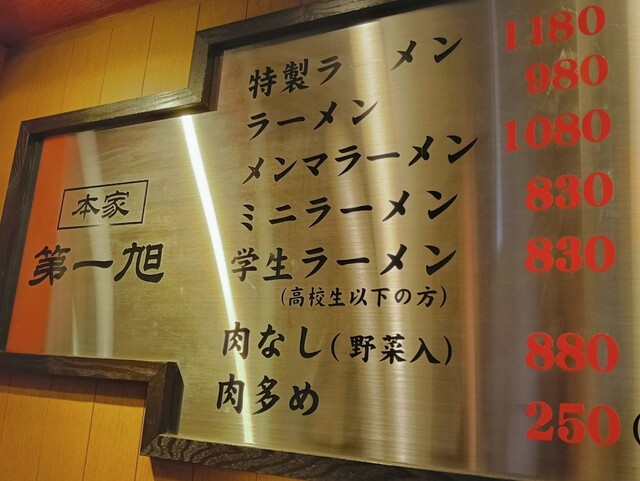 本家
第一旭
特製ラーメン 1180
ラーメン 980
メンマラーメン 1080
ミニラーメン 830
学生ラーメン 830
(高校生以下の方)
肉なし(野菜入) 880
肉多め 250(